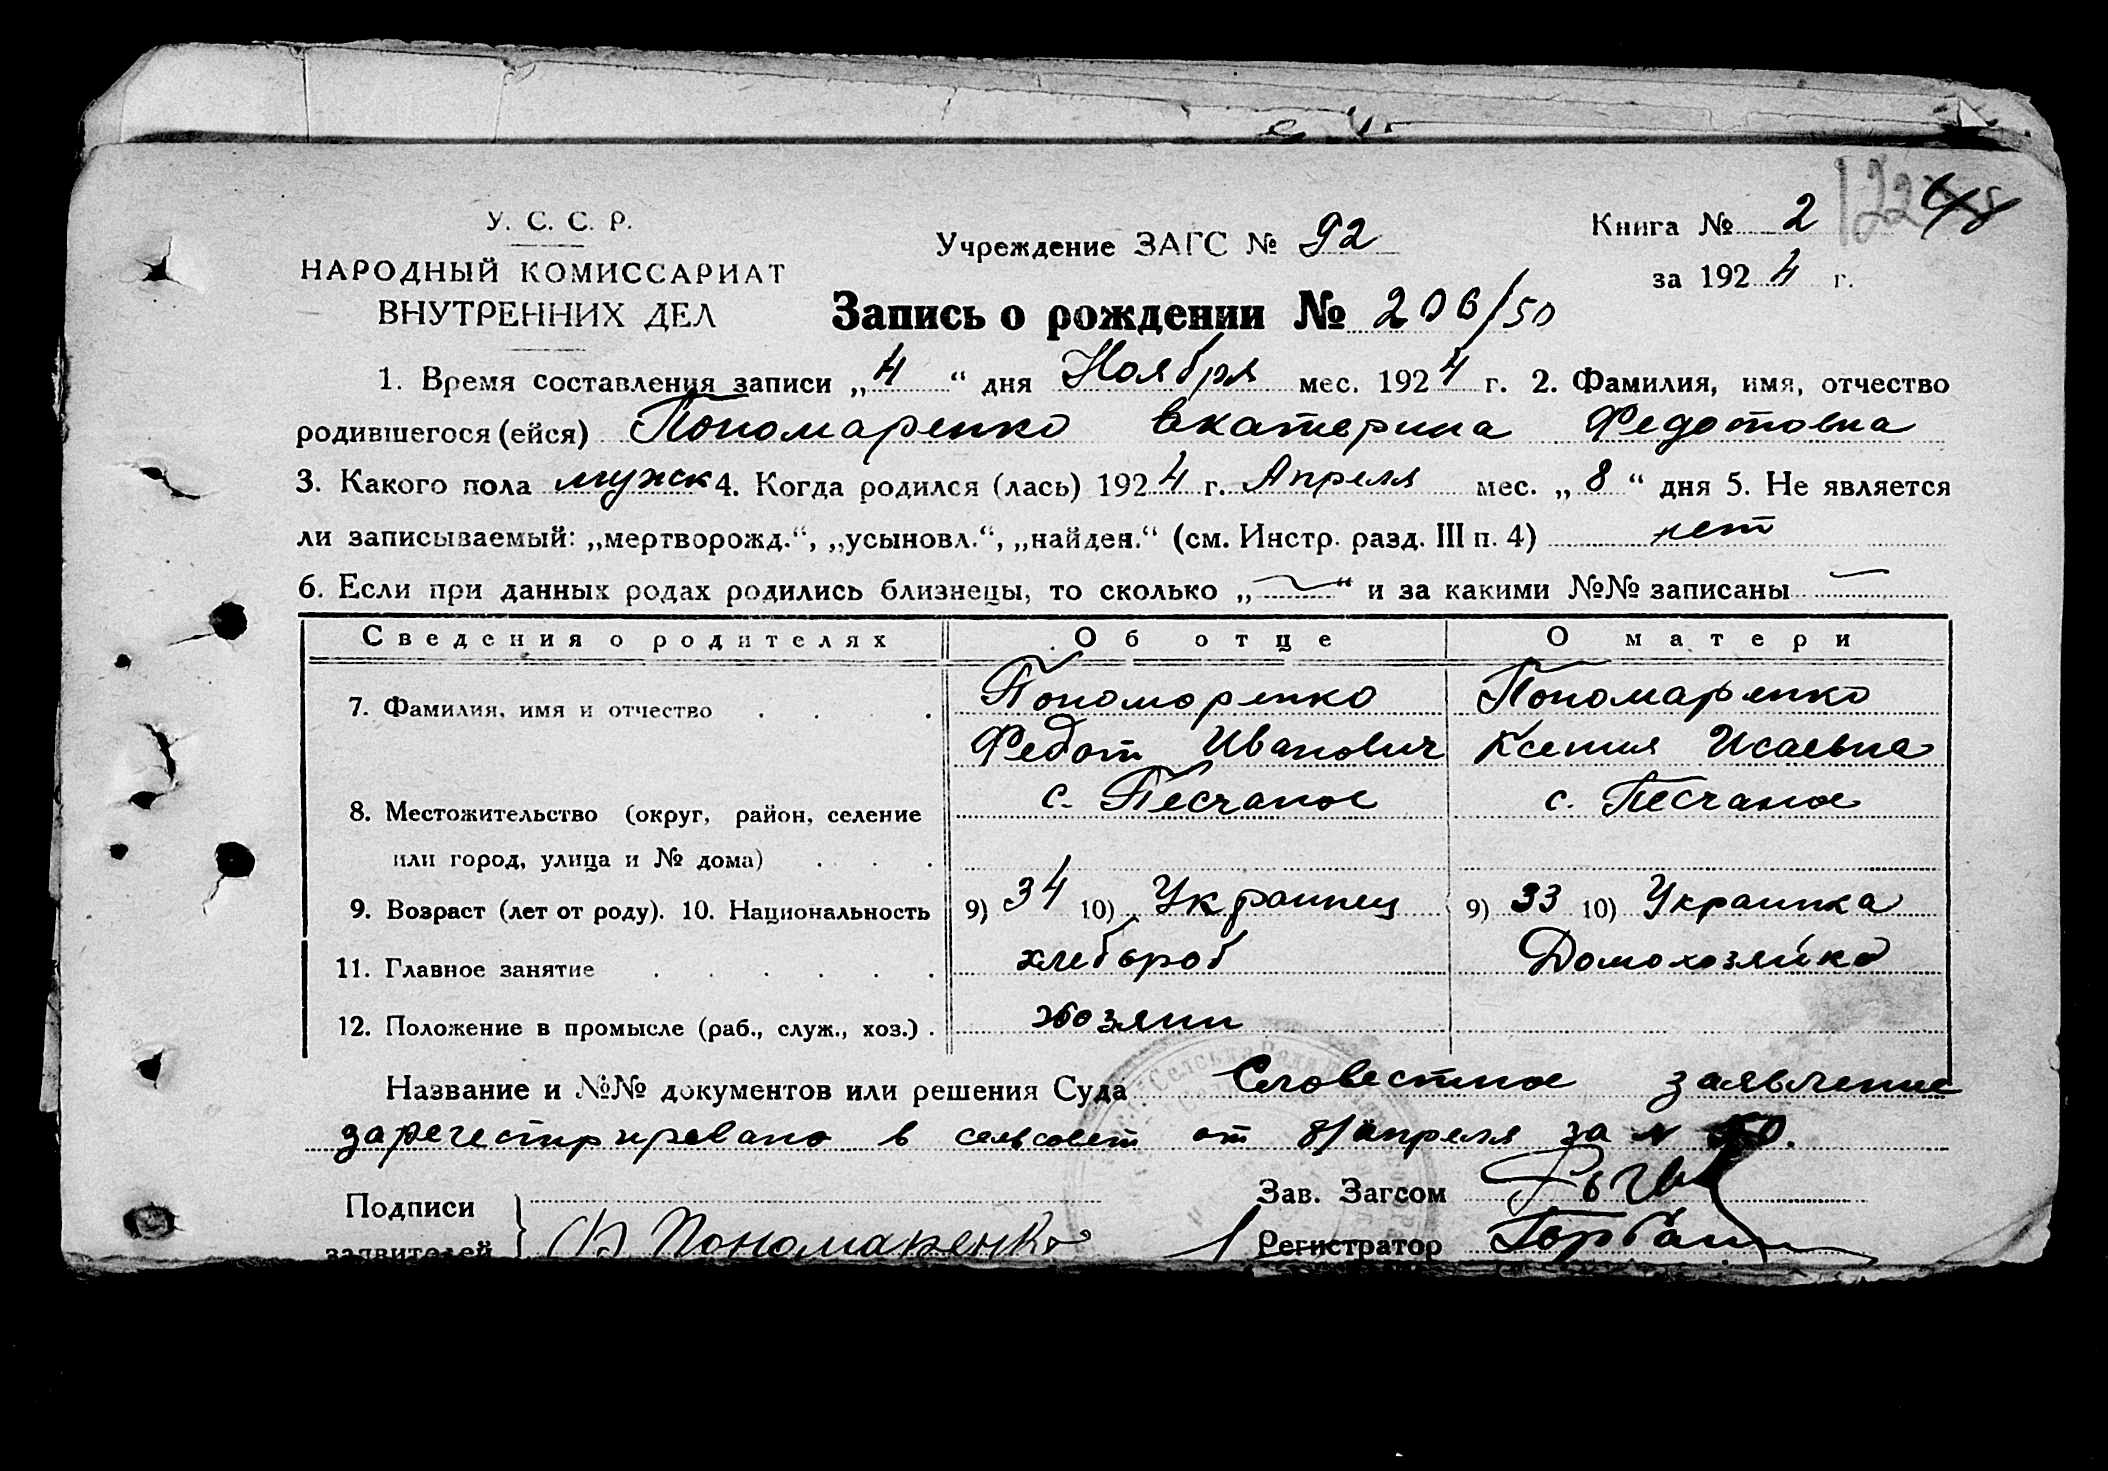 122
У. С. С. Р.
НАРОДНЫЙ КОМИССАРИАТ
ВНУТРЕННИХ ДЕЛ
Учреждение ЗАГС № 92
Книга № 2
за 1924 г.
Запись о рождении № 206/50
1. Время составления записи „4“ дня Ноября мес. 1924 г. 2. Фамилия, имя, отчество
родившегося (ейся) Пономаренко Екатерина Федотовна
3. Какого пола мужск 4. Когда родился (лась) 1924 г. Апреля мес. „8“ дня 5. Не является
ли записываемый: „мертворожд.“, „усыновл.“, „найден.“ (см. Инстр. разд. III п. 4) нет
6. Если при данных родах родились близнецы, то сколько „—“ и за какими №№ записаны —
Сведения о родителях Об отце О матери
7. Фамилия, имя и отчество . . . . Пономоренко Пономаренко
Федот Иванович Ксения Исаевна
8. Местожительство (округ, район, селение с. Песчаное с. Песчаное
или город, улица и № дома) . . .
9. Возраст (лет от роду). 10. Национальность 9) 34 10) Украинец 9) 33 10) Украинка
11. Главное занятие . . . . . . хлебороб Домохозяйка
12. Положение в промысле (раб., служ., хоз.) . хозяин
Название и №№ документов или решения Суда Словестное заявление
зарегестрировано в сельсовет от 8/апреля за № 50.
Подписи Зав. Загсом
заявителей } Ф Пономаренко Регистратор Горбань